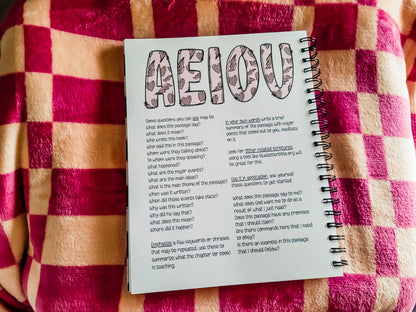 AEIOU
Some questions you can ask may be
what does this passage say?
what does it mean?
who wrote this book?
who said this in this passage?
whom were they talking about?
To whom were they speaking?
what happened?
what are the major events?
what are the main ideas?
what is the main theme of the passage?
when was it written?
when did these events take place?
why was this written?
why did he say that?
what does this mean?
where did it happen?
Emphasize a few keywords or phrases
that may be repeated, use these to
summarize what the chapter (or book)
is teaching.
In your own words write a brief
summary of the passage with major
points that stood out to you, meditate
on it.
Look for Other related scriptures
using a tool like blueletterbible.org will
be great for this.
Use it in application, ask yourself
these questions to get started.
what does this passage say to me?
what does God want me to do as a
result of what I just read?
Does this passage have any promises
that I should claim?
Are there commands here that I need
to obey?
Is there an example in this passage
that I should follow?